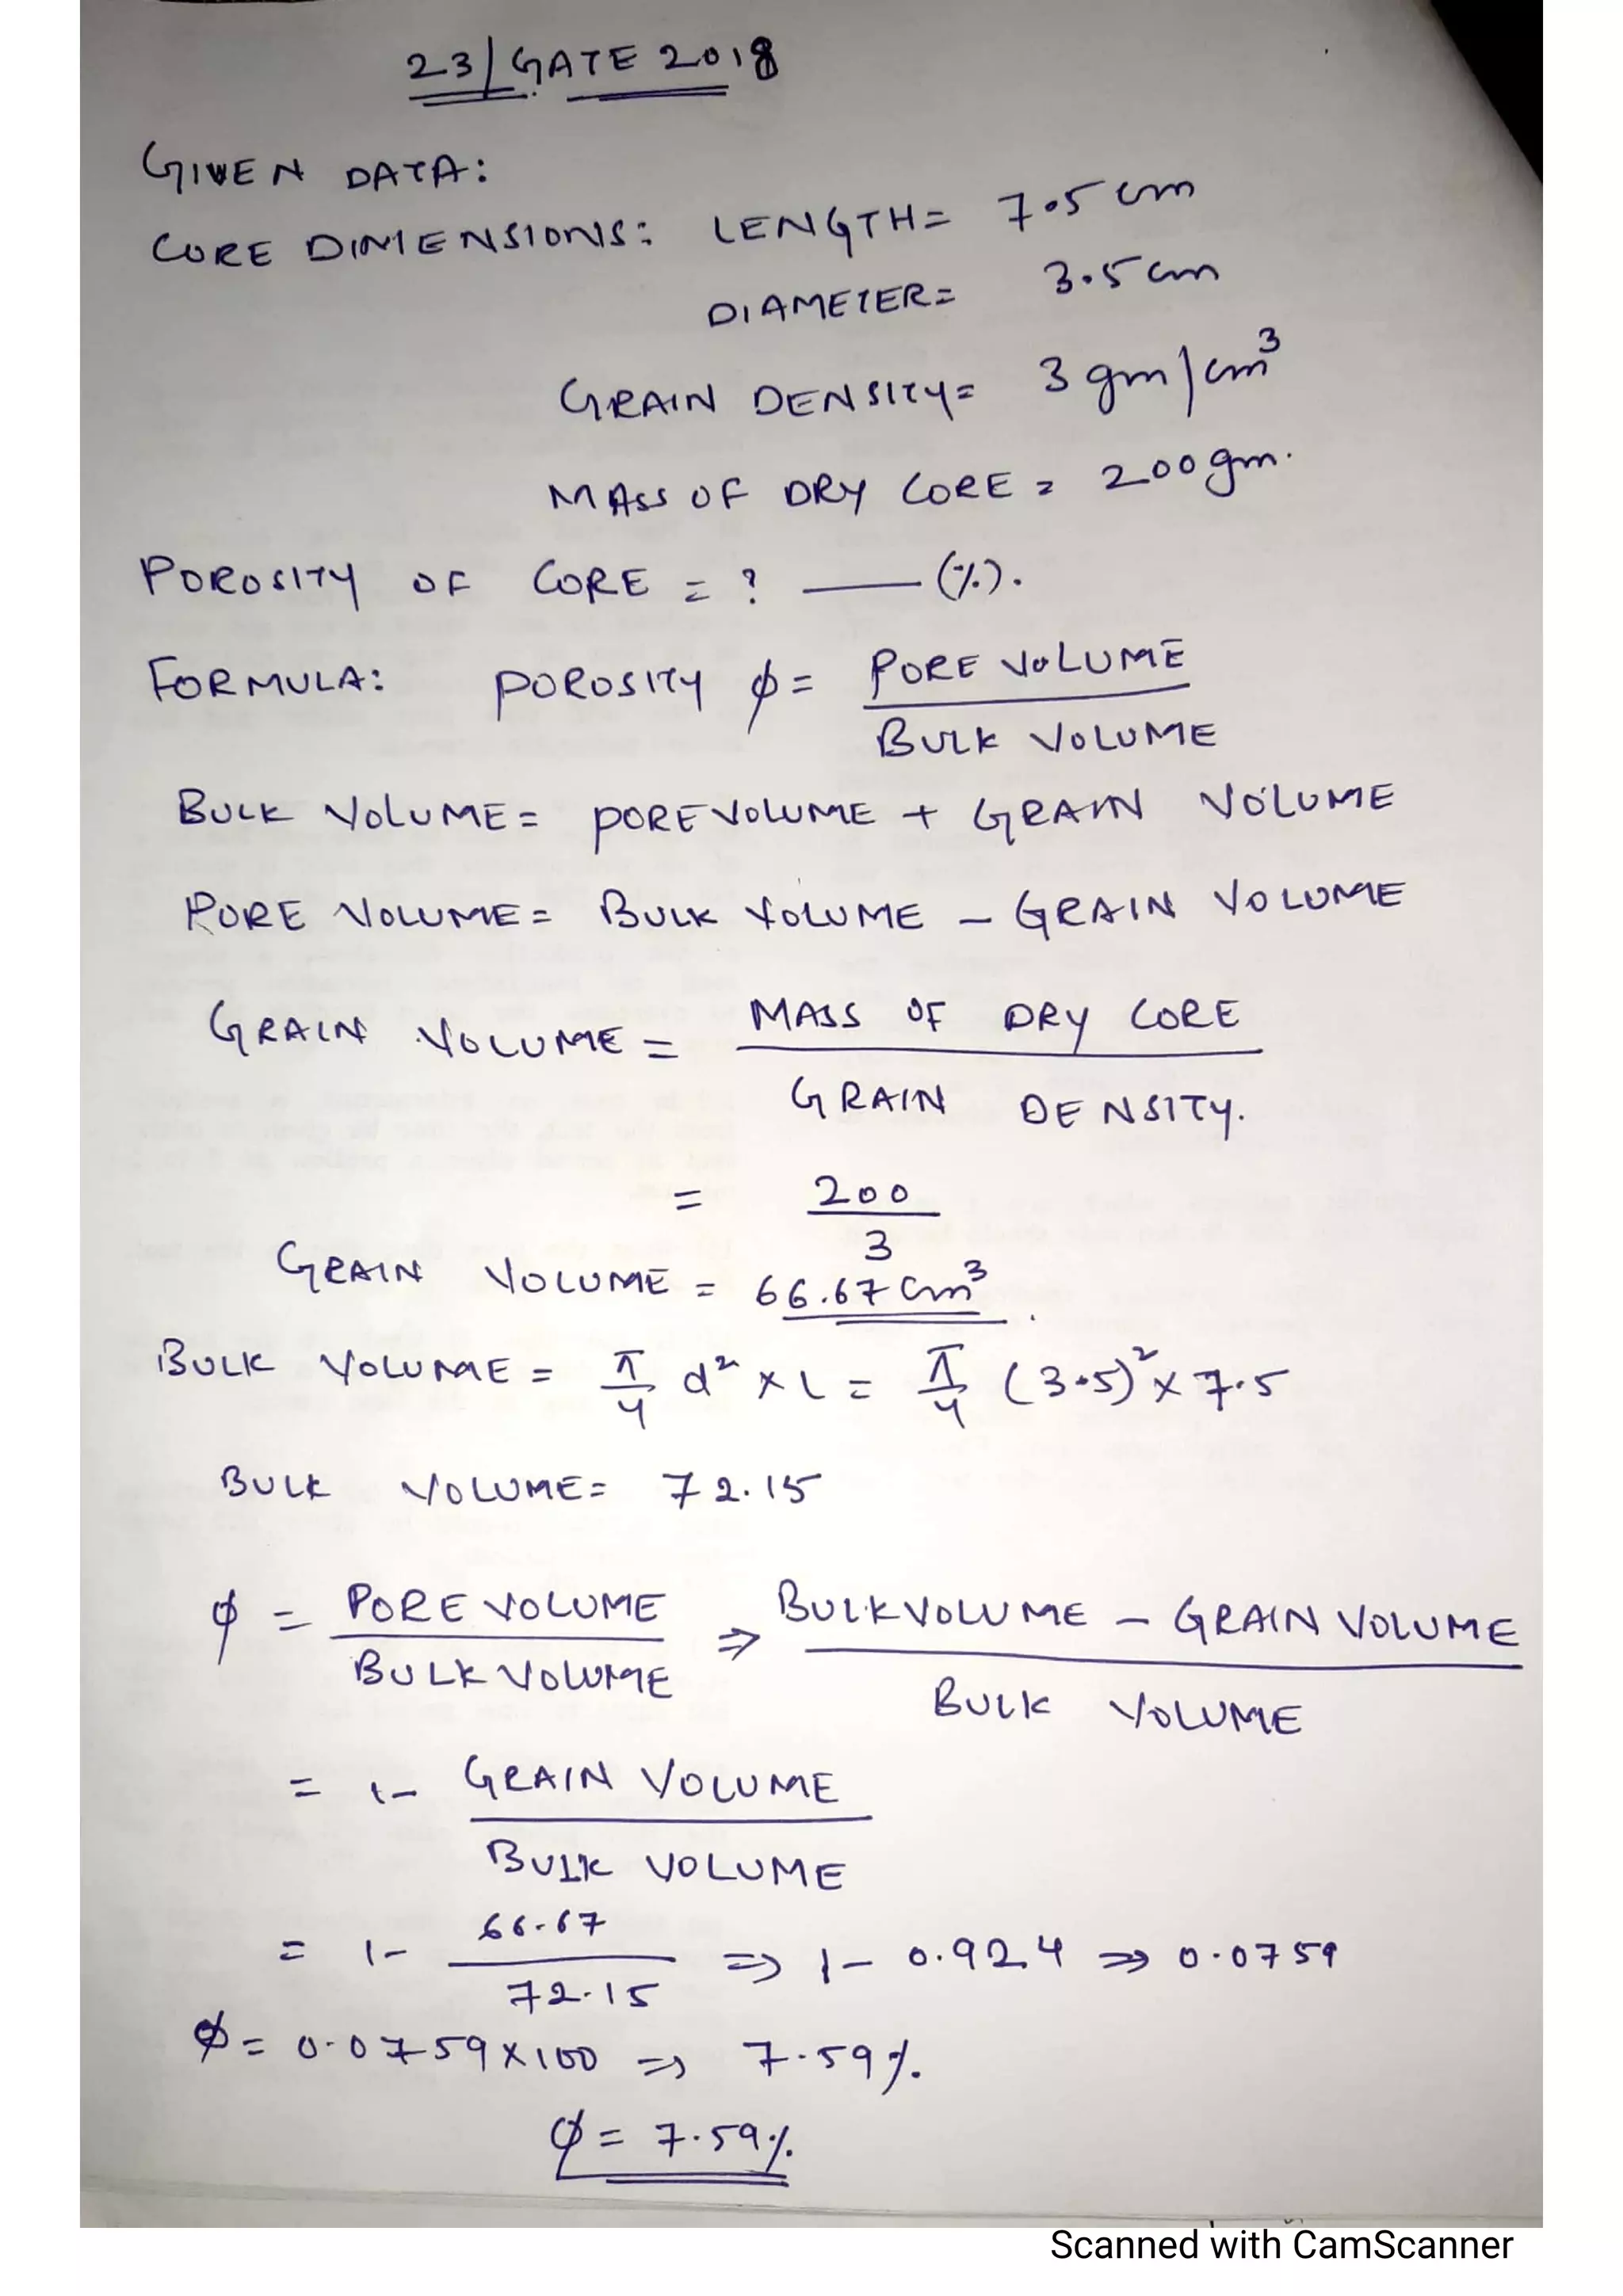 23/GATE 2018
GIVEN DATA:
CORE DIMENSIONS: LENGTH= 7.5 cm
DIAMETER= 3.5 cm
GRAIN DENSITY= 3 gm/cm³
MASS OF DRY CORE = 200 gm.
POROSITY OF CORE = ? —— (%).
FORMULA: POROSITY ϕ = PORE VOLUME
BULK VOLUME
BULK VOLUME = PORE VOLUME + GRAIN VOLUME
PORE VOLUME = BULK VOLUME – GRAIN VOLUME
GRAIN VOLUME = MASS OF DRY CORE
GRAIN DENSITY.
= 200
3
GRAIN VOLUME = 66.67 cm³.
BULK VOLUME = π/4 d² × L = π/4 (3.5)² × 7.5
BULK VOLUME = 72.15
ϕ = PORE VOLUME ⇒ BULK VOLUME – GRAIN VOLUME
BULK VOLUME BULK VOLUME
= 1 - GRAIN VOLUME
BULK VOLUME
= 1 - 66.67 ⇒ 1 - 0.924 ⇒ 0.0759
72.15
ϕ = 0.0759 × 100 ⇒ 7.59%.
ϕ = 7.59%
Scanned with CamScanner